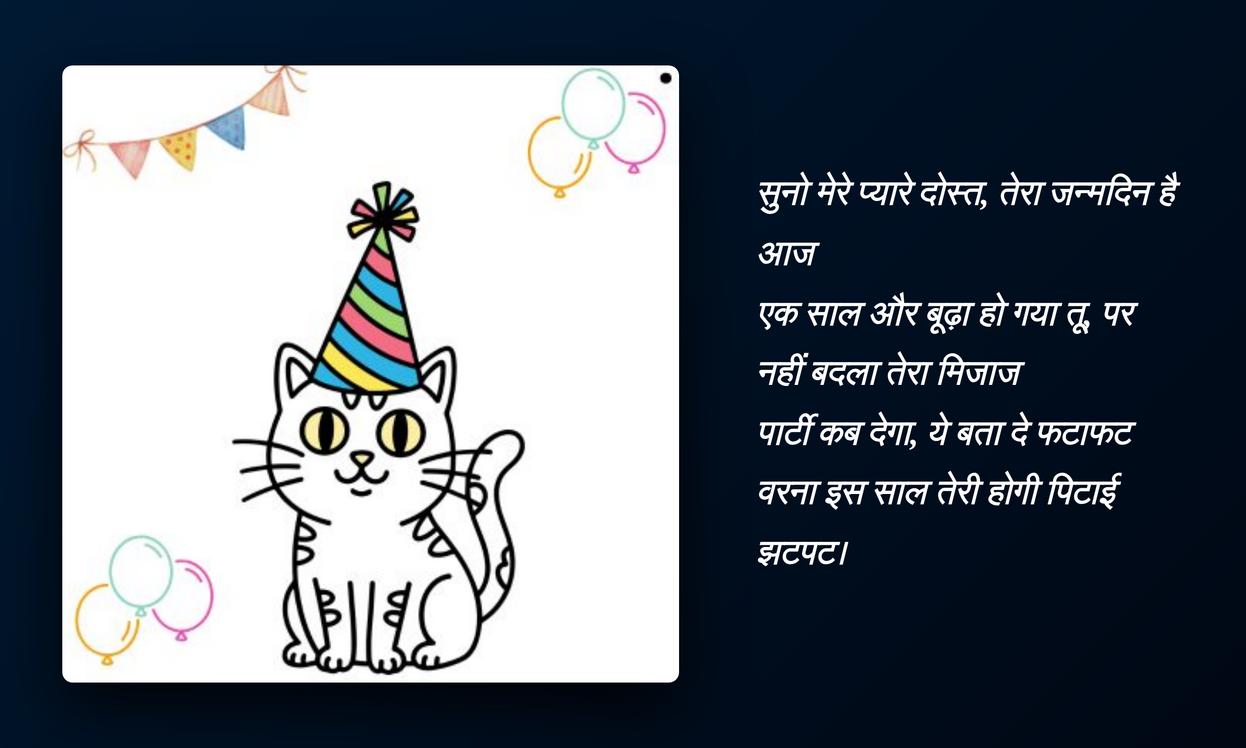 सुनो मेरे प्यारे दोस्त, तेरा जन्मदिन है
आज
एक साल और बूढ़ा हो गया तू, पर
नहीं बदला तेरा मिजाज
पार्टी कब देगा, ये बता दे फटाफट
वरना इस साल तेरी होगी पिटाई
झटपट।